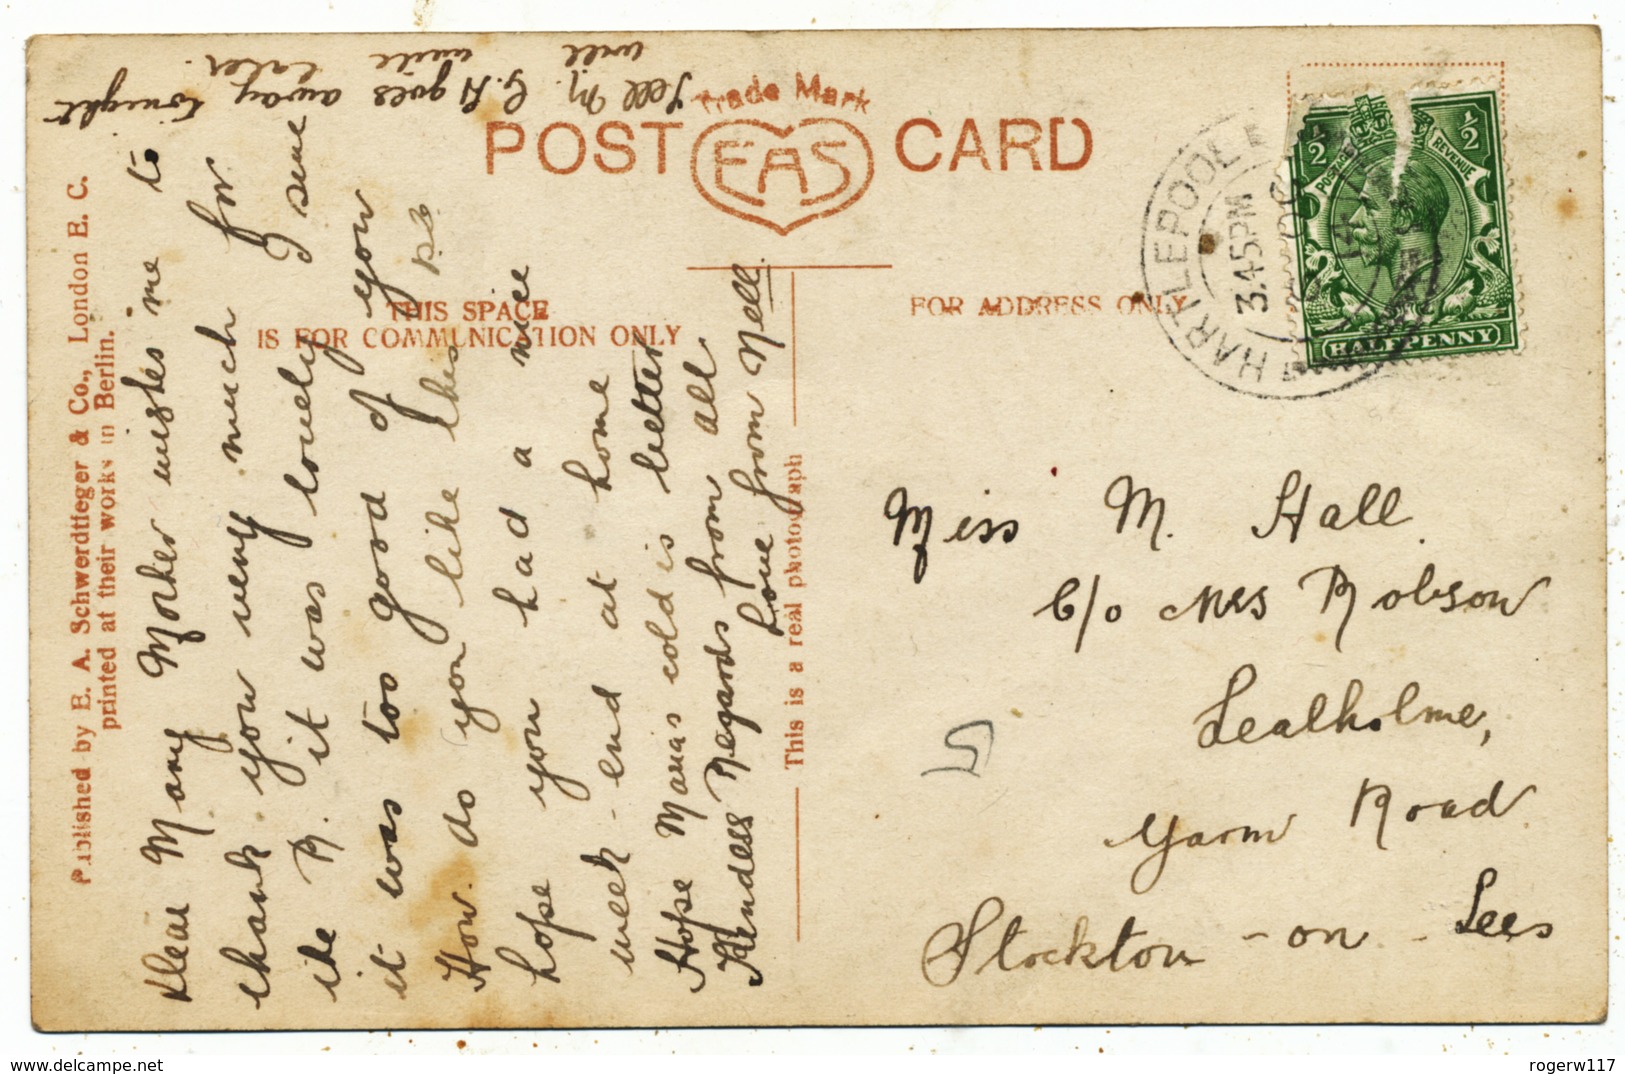 Tell M. G. H goes away tonight
will write later.
Trade Mark
POST CARD
EAS
THIS SPACE
IS FOR COMMUNICATION ONLY
FOR ADDRESS ONLY
Published by E. A. Schwerdtfeger & Co., London E. C.
printed at their works in Berlin.
This is a real photograph
Dear Mary Mother wishes me to
thank you very much for
the R. it was lovely I sure
it was too good of you
How do you like this pc
hope you had a nice
week-end at home
Hope Marias cold is better
Kindess Regards from all
Love from Nell.
HARTLEPOOL
3.45PM
½ ½
POSTAGE REVENUE
HALFPENNY
Miss M. Hall
C/o Mrs Robson
Lealholme,
Yarm Road
Stockton-on-Tees
5
rogerw117
delcampe.net